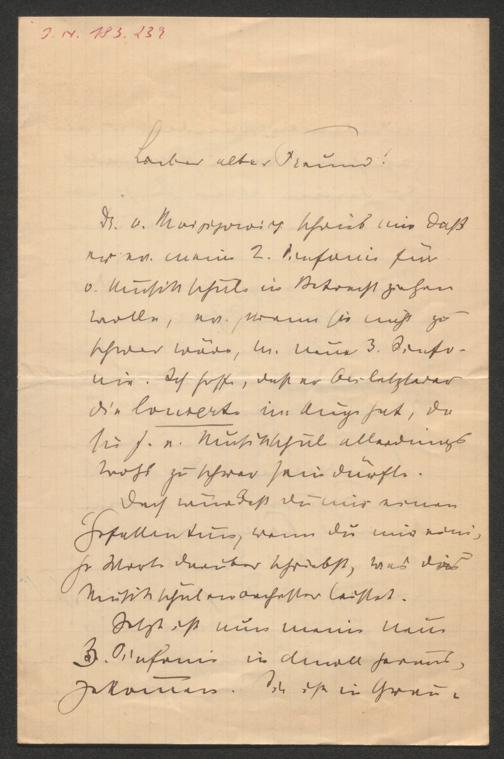 J. N. 183.239
Lieber alter Freund!
Dr. v. schrieb mir daß
er ev. meine 2. Sinfonie für
d. Musikschule in Betracht ziehen
wolle, ev. wenn sie nicht zu
schwer wäre, m. neue 3. Sinfo-
nie. Ich hoffe, daß er bei letzterer
die Concerte im Auge hat, da
sie f. e. Musikschule allerdings
wohl zu schwer sein dürfte.
Doch würdest du mir einen
Gefallen tun, wenn du mir eini-
ge Worte darüber schriebst, was das
Musikschülerorchester leistet.
Jetzt ist nun meine neue
3. Sinfonie in dmoll heraus-
gekommen. Sie ist in